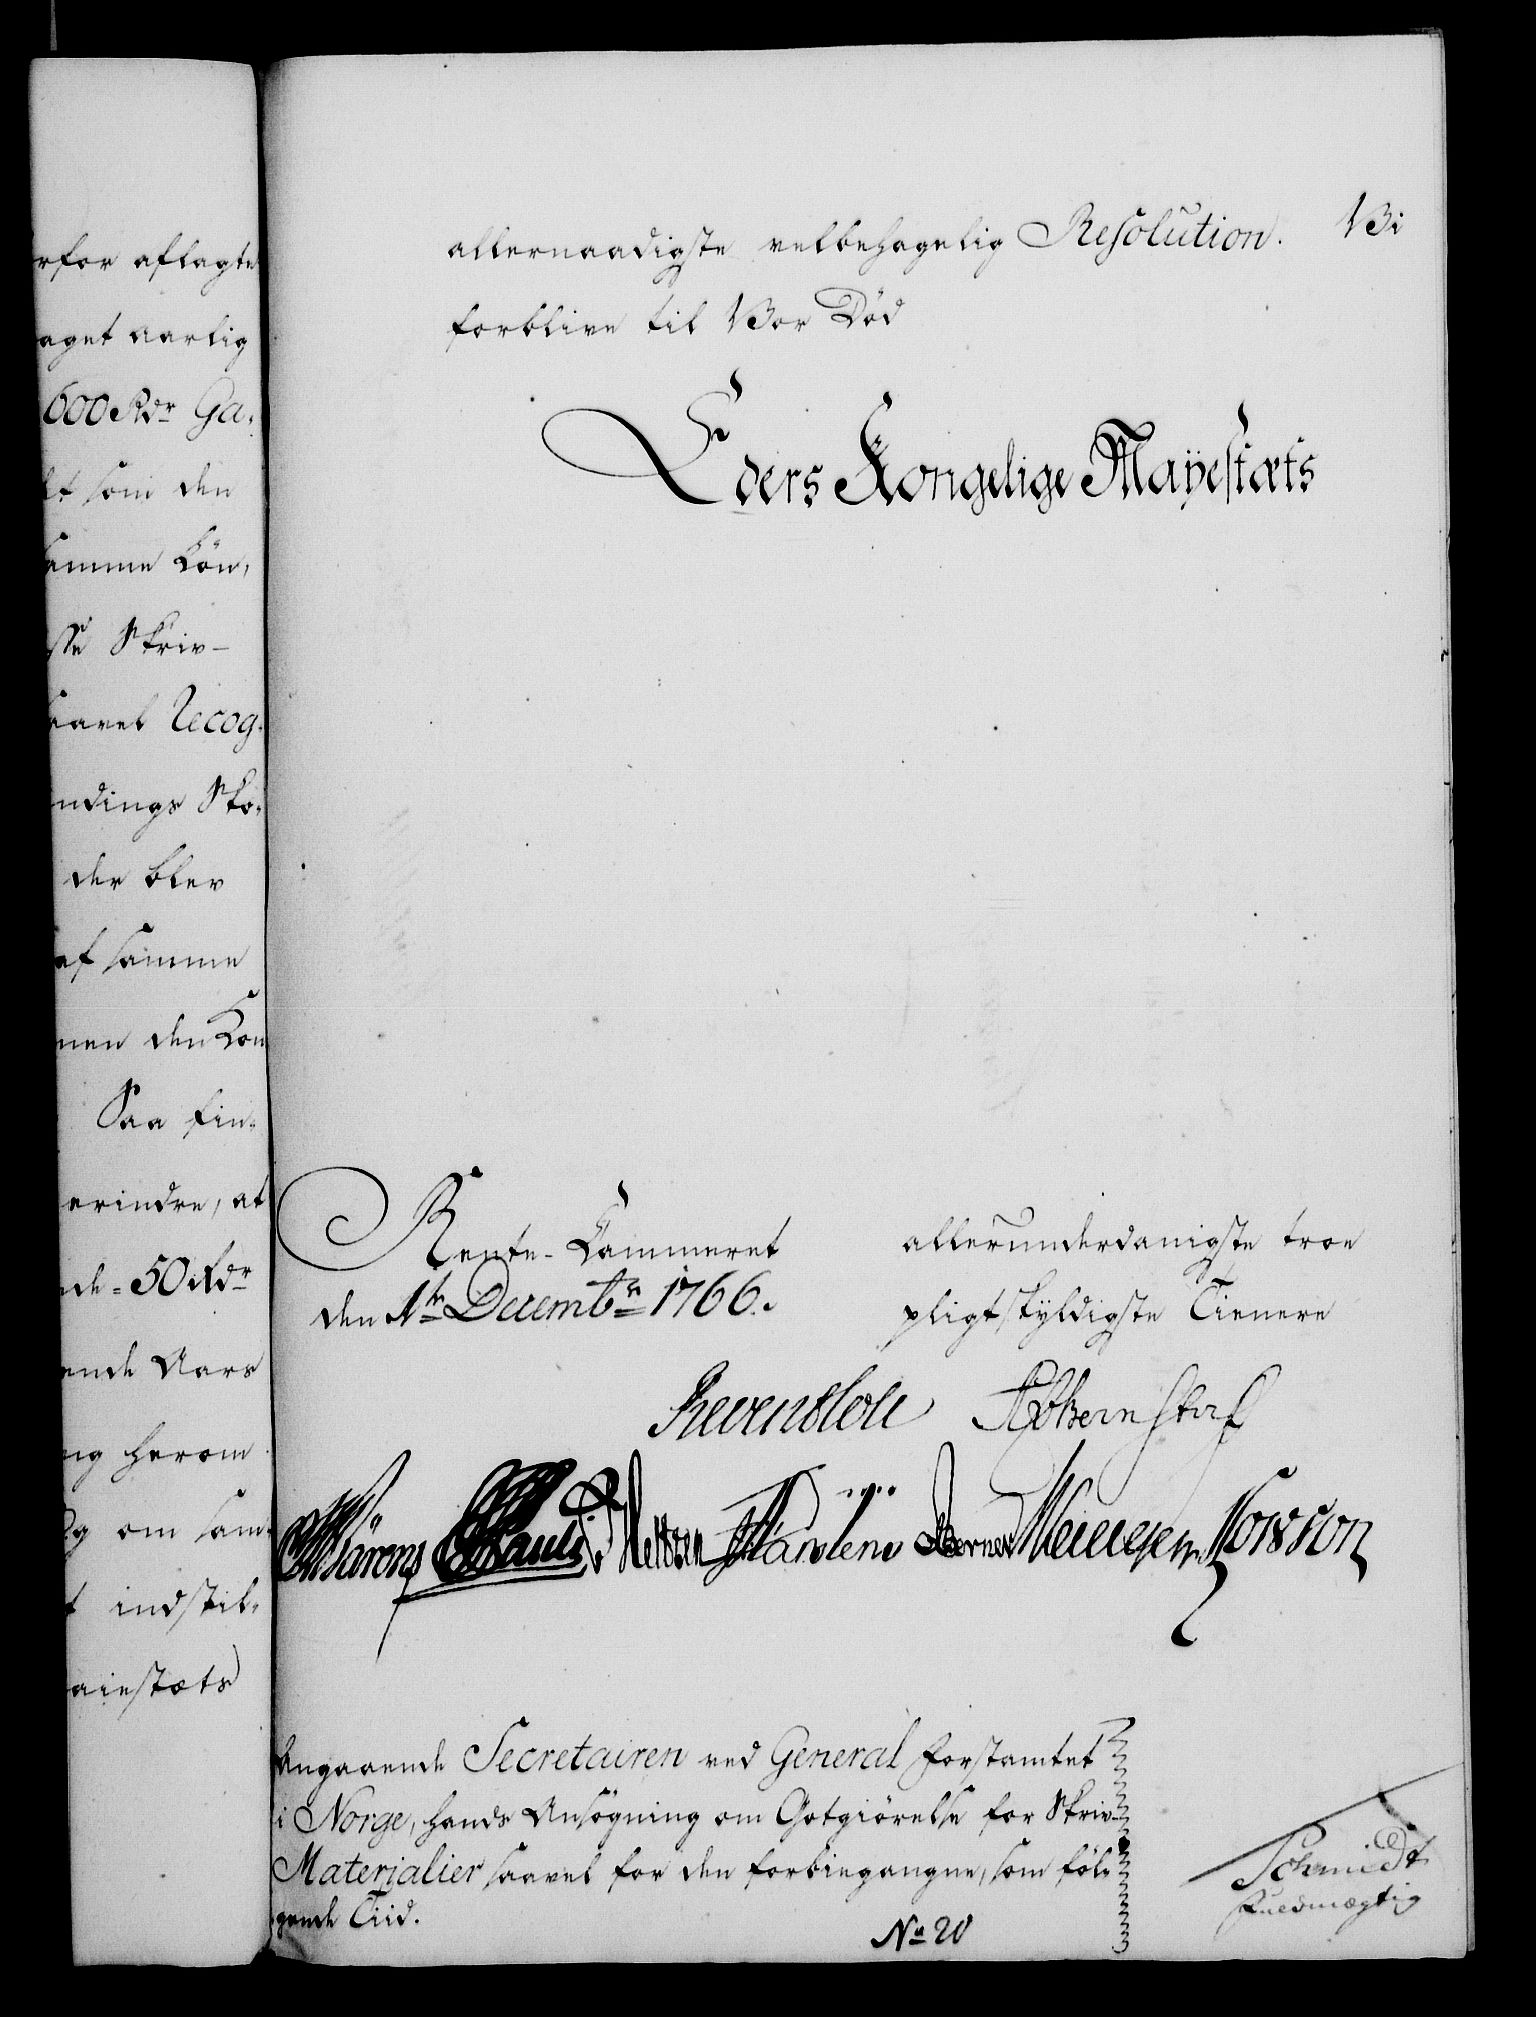 rfor aflagte
aget aarlig
600 Rdr Ga-
lt som den
samme Løn,
sse Skriv-
saavel Recog-
ndings Sko-
der blev
af samme
men den Kon
Saa fin-
erindre, at
nde - 50 Rdr
ende Aars
ng herom
og om sam-
t indstil-
aiestæts
allernaadigste velbehagelig Resolution. Vi
forblive til Vor Død
Eders Kongelige Mayestæts
Rente-Cammeret
den 1te Decembr 1766.
allerunderdanigste troe
pligtskyldigste Tienere
Reventlow AGBernstorff
Pauli Heltzen Berner
Angaaende Secretairen ved General Forstamtet
i Norge, hands Ansøgning om Gotgiørelse for Skriv-
Materialier saavel for den forbiegangne, som føl-
gende Tiid.
No 20
Schmidt
Fuldmægtig